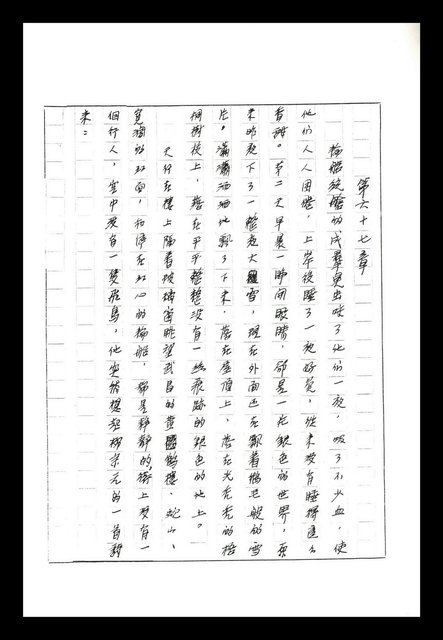 第六十七章
輪船統艙的成羣臭虫咬了他們一夜，吸了不少血，使
他們人人困憊，上岸後睡了一夜好覺，從來沒有睡得這么
香甜。第二天早晨一睜開眼睛，卻是一片銀色的世界，原
來昨夜下了一整夜大雪，現在外面还在飄着鵝毛般的雪
片，瀟瀟洒洒地飄了下來，落在屋頂上，落在光秃秃的梧
桐樹枝上，落在平平整整沒有一絲痕跡的銀色的地上。
天仔在樓上隔着玻璃窗眺望武昌的黃鶴樓、蛇山、
寬濶的江面，和停在江心的輪船，都是靜靜的，街上沒有一
個行人，空中沒有一隻飛鳥，他突然想起柳宗元的一首詩
來：